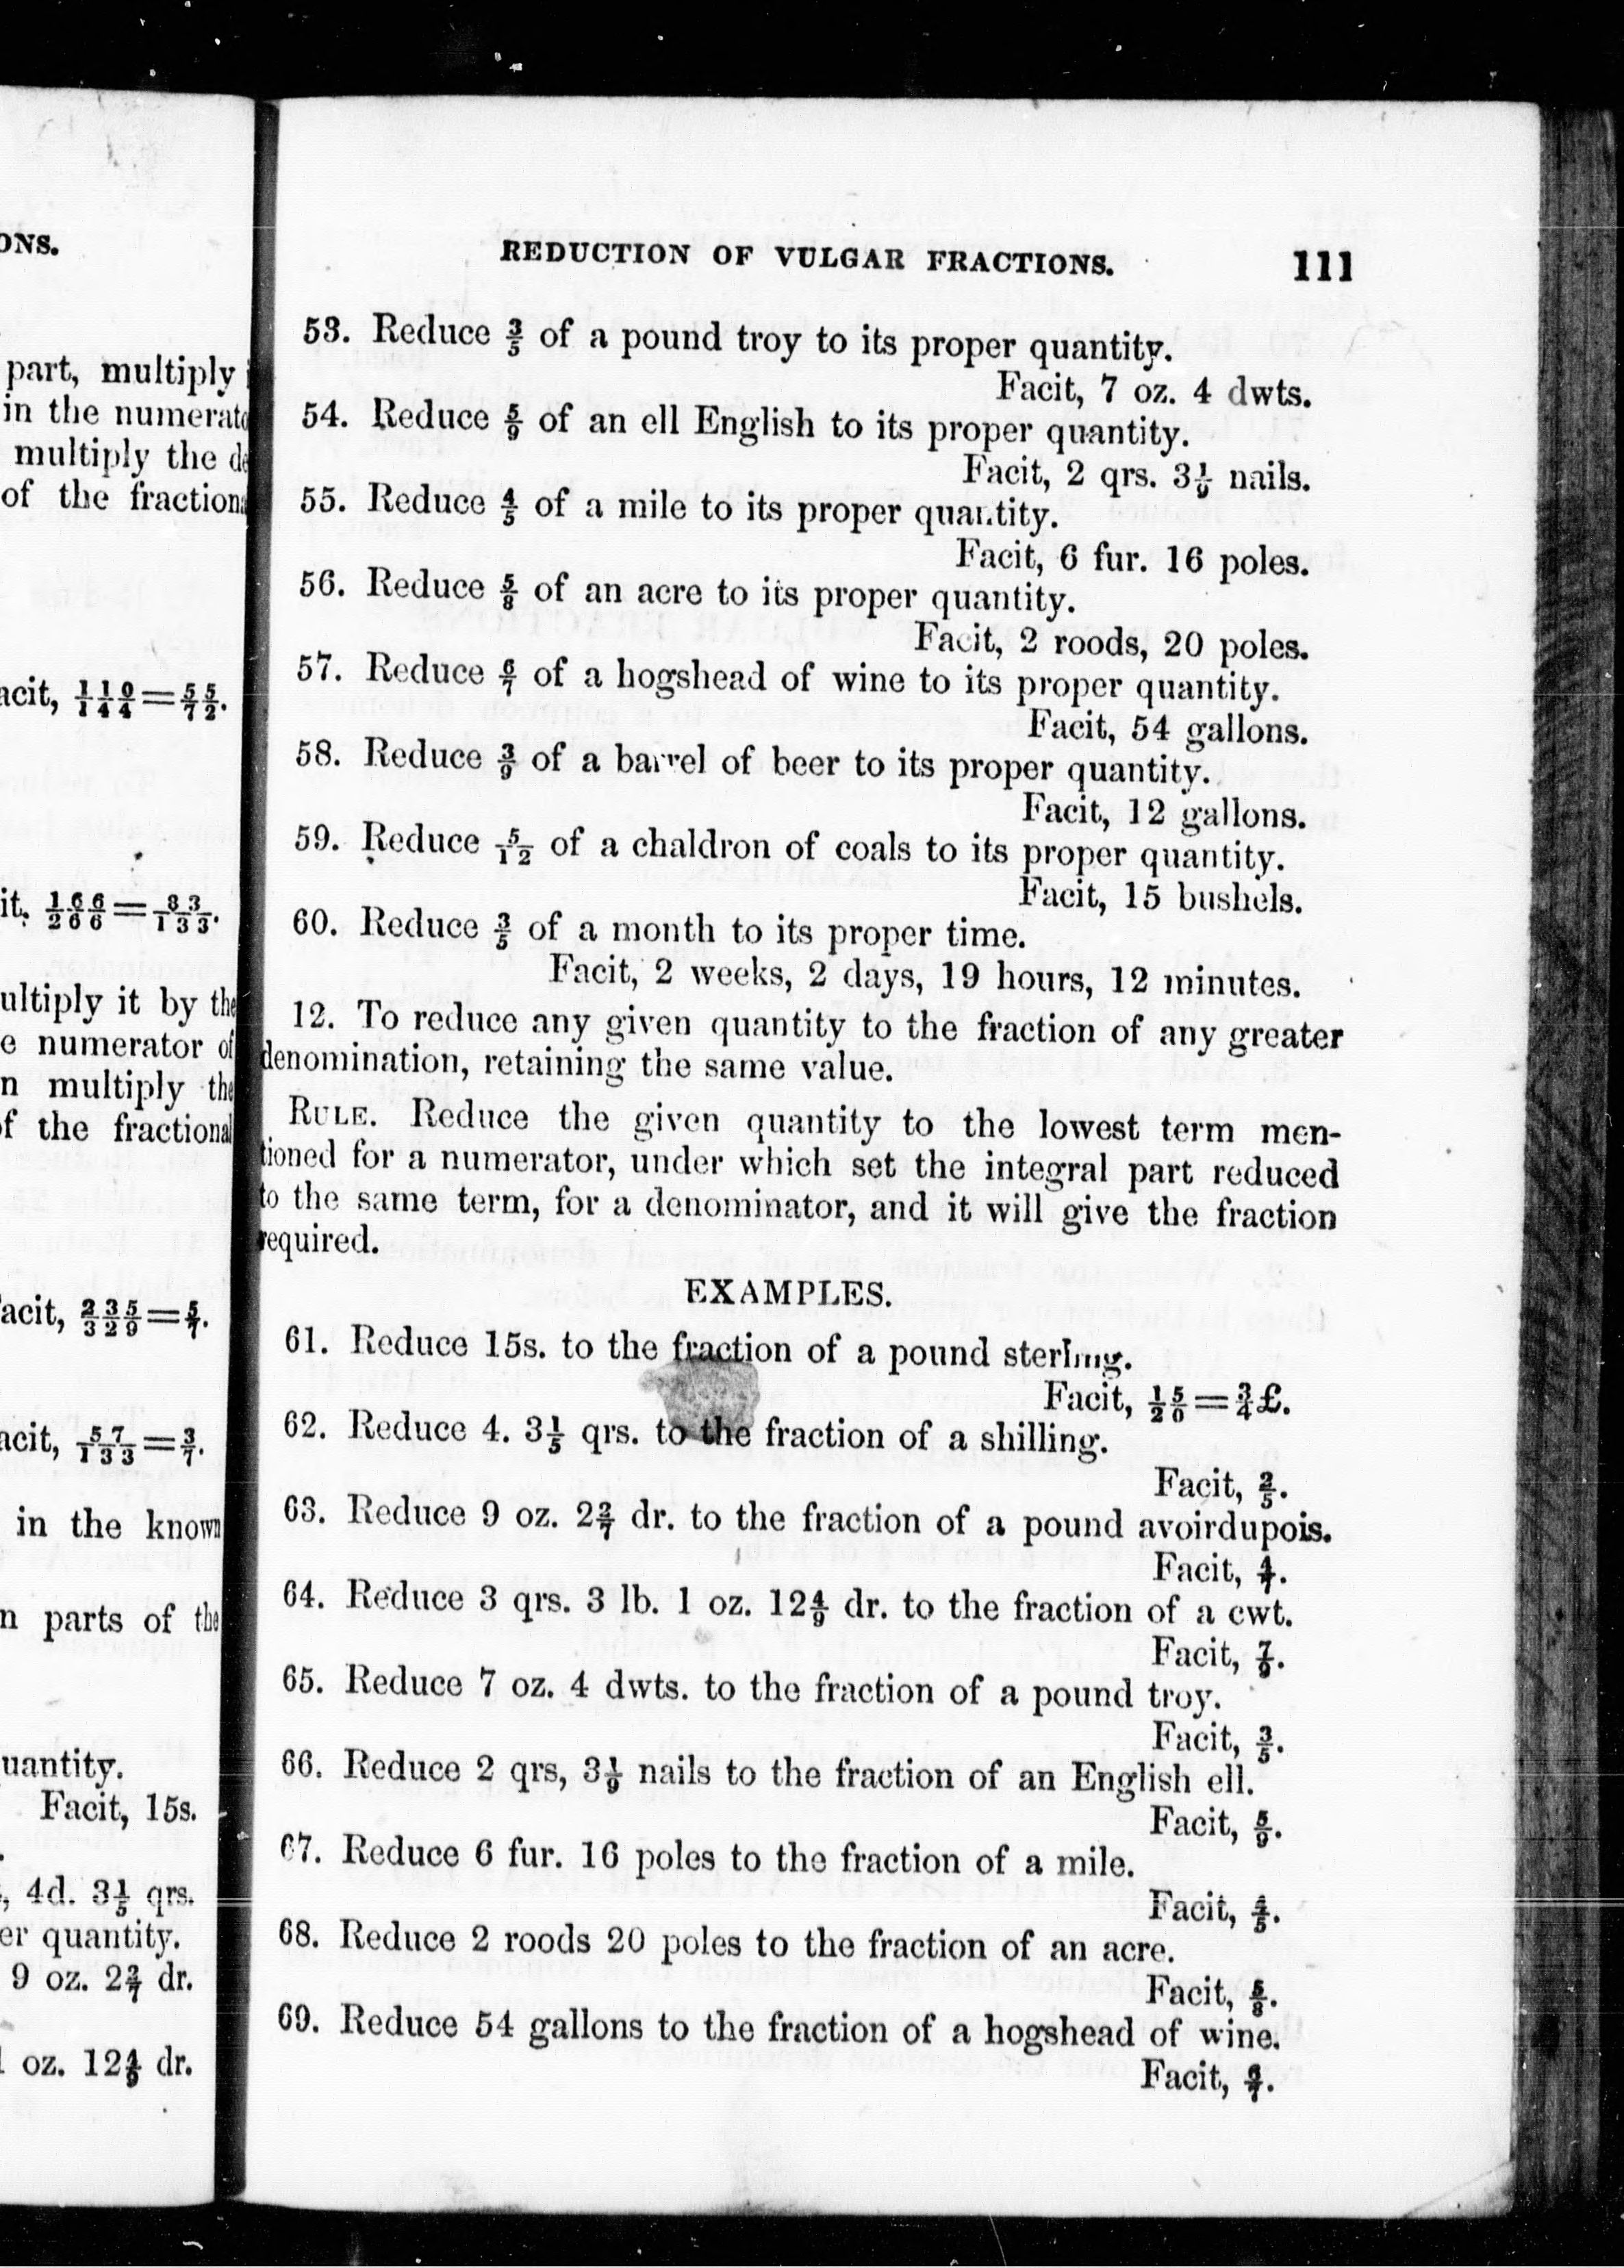 ONS.
part, multiply
in the numerato
multiply the de
of the fraction
acit, 110/144=55/72.
it. 166/266=83/133.
ultiply it by the
e numerator of
n multiply the
f the fractional
acit, 235/329=5/7.
acit, 57/133=3/7.
in the known
n parts of the
uantity.
Facit, 15s.
, 4d. 3 1/5 qrs.
er quantity.
9 oz. 2 2/7 dr.
oz. 12 4/9 dr.
REDUCTION OF VULGAR FRACTIONS. 111
53. Reduce 3/5 of a pound troy to its proper quantity.
Facit, 7 oz. 4 dwts.
54. Reduce 5/9 of an ell English to its proper quantity.
Facit, 2 qrs. 3 1/9 nails.
55. Reduce 4/5 of a mile to its proper quantity.
Facit, 6 fur. 16 poles.
56. Reduce 5/8 of an acre to its proper quantity.
Facit, 2 roods, 20 poles.
57. Reduce 6/7 of a hogshead of wine to its proper quantity.
Facit, 54 gallons.
58. Reduce 3/9 of a barrel of beer to its proper quantity.
Facit, 12 gallons.
59. Reduce 5/12 of a chaldron of coals to its proper quantity.
Facit, 15 bushels.
60. Reduce 3/5 of a month to its proper time.
Facit, 2 weeks, 2 days, 19 hours, 12 minutes.
12. To reduce any given quantity to the fraction of any greater
denomination, retaining the same value.
RULE. Reduce the given quantity to the lowest term men-
tioned for a numerator, under which set the integral part reduced
to the same term, for a denominator, and it will give the fraction
required.
EXAMPLES.
61. Reduce 15s. to the fraction of a pound sterling.
Facit, 15/20=3/4£.
62. Reduce 4. 3 1/5 qrs. to the fraction of a shilling.
Facit, 2/5.
63. Reduce 9 oz. 2 2/7 dr. to the fraction of a pound avoirdupois.
Facit, 4/7.
64. Reduce 3 qrs. 3 lb. 1 oz. 12 4/9 dr. to the fraction of a cwt.
Facit, 7/9.
65. Reduce 7 oz. 4 dwts. to the fraction of a pound troy.
Facit, 3/5.
66. Reduce 2 qrs, 3 1/9 nails to the fraction of an English ell.
Facit, 5/9.
67. Reduce 6 fur. 16 poles to the fraction of a mile.
Facit, 4/5.
68. Reduce 2 roods 20 poles to the fraction of an acre.
Facit, 5/8.
69. Reduce 54 gallons to the fraction of a hogshead of wine.
Facit, 6/7.